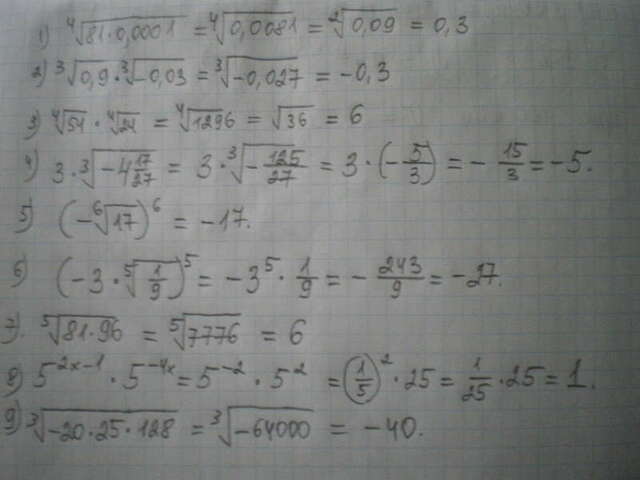 1) ⁴√(81·0,0001) = ⁴√(0,0081) = ²√(0,09) = 0,3
2) ³√0,9 · ³√(-0,03) = ³√(-0,027) = -0,3
3) ⁴√54 · ⁴√24 = ⁴√1296 = √36 = 6
4) 3 · ³√(-4 17/27) = 3 · ³√(-125/27) = 3 · (-5/3) = -15/3 = -5.
5) (-⁶√17)⁶ = -17.
6) (-3 · ⁵√(1/9))⁵ = -3⁵ · 1/9 = -243/9 = -27.
7). ⁵√(81·96) = ⁵√7776 = 6
8) 5^(2x-1) · 5^(-4x) = 5⁻² · 5² = (1/5)² · 25 = 1/25 · 25 = 1.
9) ³√(-20·25·128) = ³√(-64000) = -40.